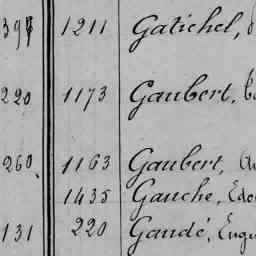 397 1211 Gatichel,
220 1173 Gaubert,
260 1163 Gaubert,
1435 Gauche,
131 220 Gaudé,